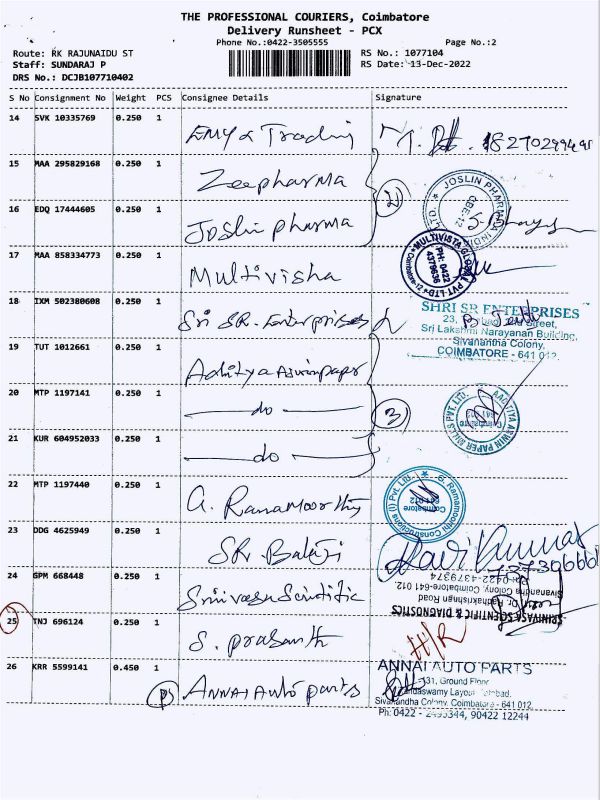 THE PROFESSIONAL COURIERS, Coimbatore
Delivery Runsheet - PCX
Phone No.:0422-3505555 Page No.:2
Route: RK RAJUNAIDU ST RS No.: 1077104
Staff: SUNDARAJ P RS Date: 13-Dec-2022
DRS No.: DCJB107710402
S No Consignment No Weight PCS Consignee Details Signature
14 SVK 10335769 0.250 1
15 MAA 295829168 0.250 1 Zeepharma
16 EDQ 17444605 0.250 1 Joslin pharma
2
JOSLIN PHARMA INDIA
17 MAA 858334773 0.250 1 Multivisha
MULTIVISTA GLOBAL PVT-LTD
PH: 0422
4379636
Coimbatore-12
18 IXM 502380608 0.250 1 Sri SR. Enterprises
SHRI SR ENTERPRISES
23, Street,
Sri Lakshmi Narayanan Building,
Sivanantha Colony,
COIMBATORE - 641 012.
19 TUT 1012661 0.250 1 Aditya Aswinpaper
20 MTP 1197141 0.250 1 do
3
AADITYA ASWIN PAPER MILLS PVT. LTD.
Coimbatore
641 012
21 KUR 604952033 0.250 1 do
22 MTP 1197440 0.250 1 G. Ramamoorthy
G. Ramamoorthi Constructions (I) Pvt. Ltd.
Coimbatore
641 012
23 DDG 4625949 0.250 1 SR. Balaji
Ravi Kumar
24 GPM 668448 0.250 1 Srinivasa Scientific
SRINIVASA SCIENTIFIC & DIAGNOSTICS
Dr. Radhakrishnan Road
Sivanandha Colony, Coimbatore-641 012.
PH: 0422-4379374
25 TNJ 696124 0.250 1 S. prasanth
26 KRR 5599141 0.450 1 ANNAI Auto parts
ANNAI AUTO PARTS
131, Ground Floor,
Layout
Sivanandha Colony, Coimbatore - 641 012.
Ph: 0422 - 2493344, 90422 12244